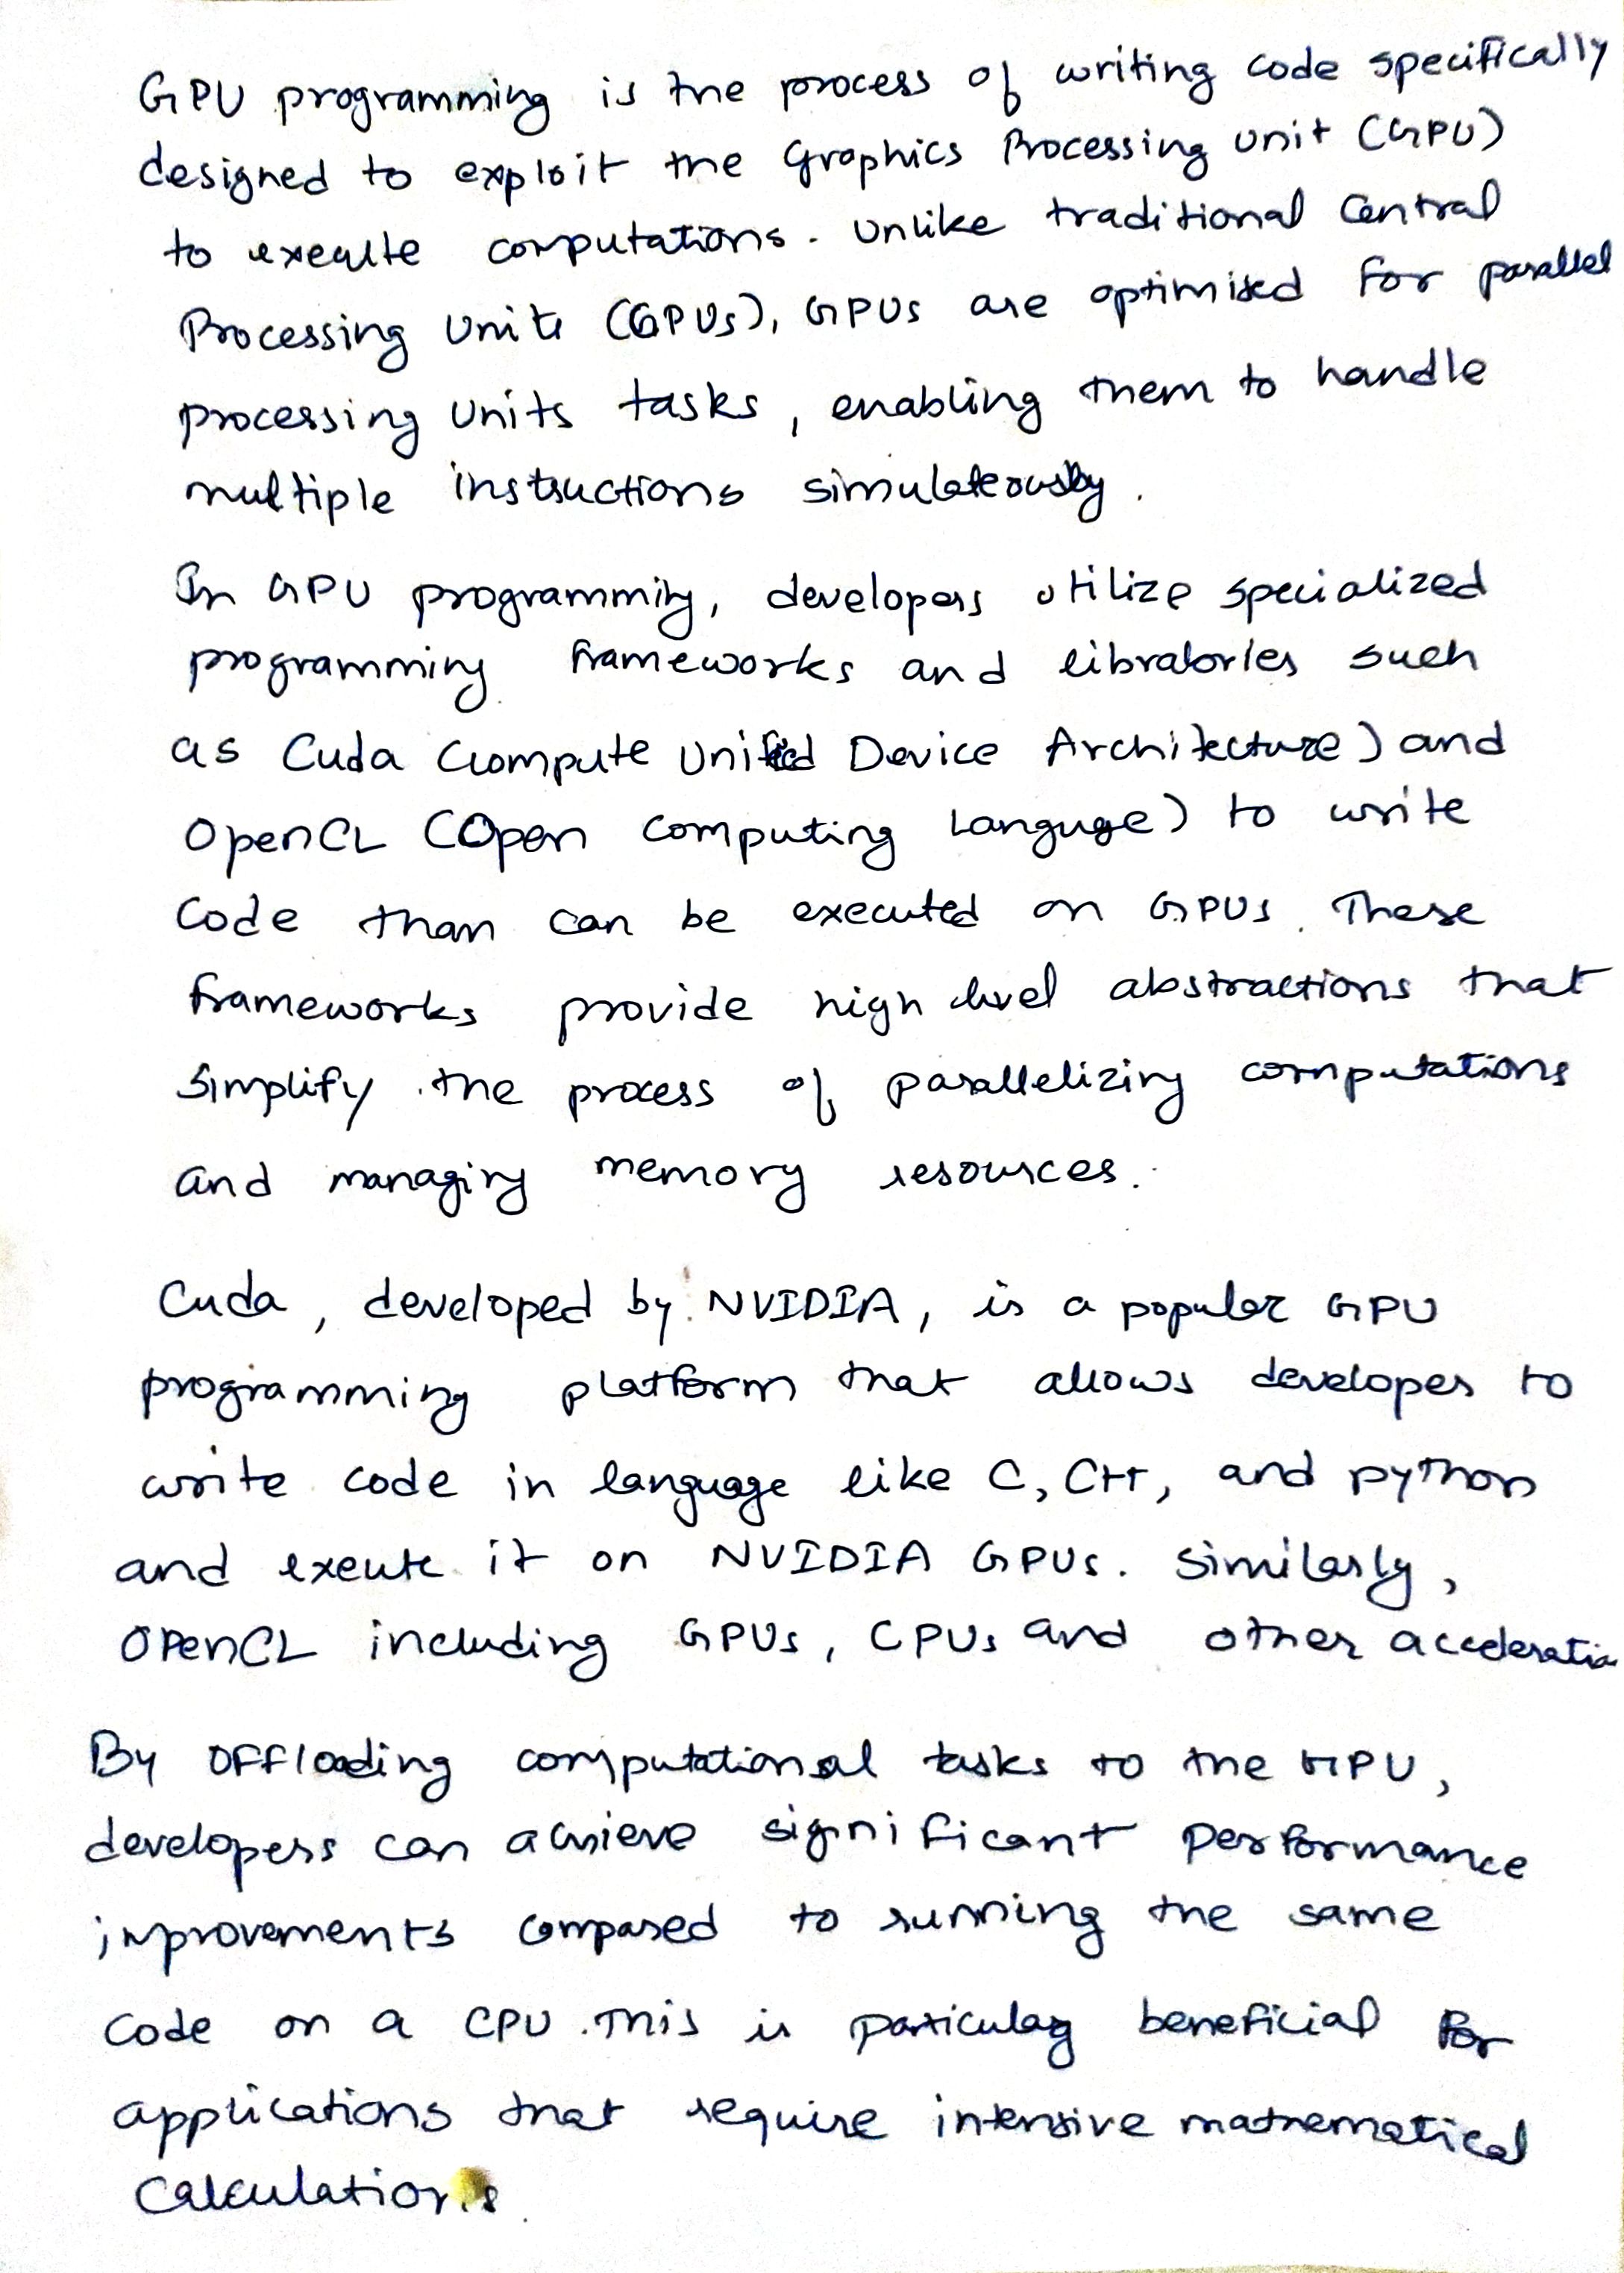 GPU programming is the process of writing code specifically
designed to exploit the Graphics Processing unit (GPU)
to execute computations. Unlike traditional Central
Processing Units (GPUs), GPUs are optimized for parallel
processing units tasks, enabling them to handle
multiple instructions simulateously.
In GPU programming, developers utilize specialized
programming frameworks and libralories such
as Cuda (Compute Unified Device Architecture) and
OpenCL (Open Computing Languge) to write
Code than can be executed on GPUs. These
frameworks provide high level abstractions that
Simplify the process of parallelizing computations
and managing memory resources.
Cuda, developed by NVIDIA, is a popular GPU
programming platform that allows developes to
write code in language like C, C++, and python
and exeute it on NVIDIA GPUs. Similarly,
OPenCL including GPUs, CPUs and other
By OFFloading computational tasks to the GPU,
developers can achieve significant performance
improvements compared to running the same
Code on a CPU. This is particulay beneficial for
applications that require intensive mathematical
Calculations.